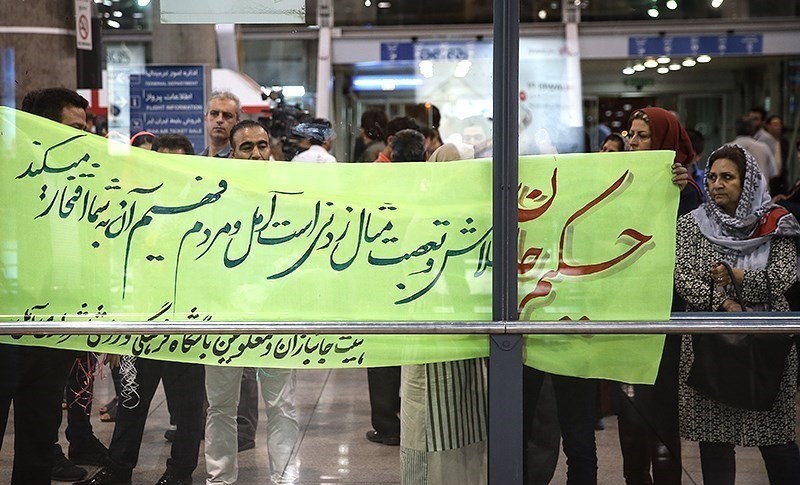 حکیم جان
تلاش و تعصبت مثال زدنی است آمل و مردم فهیم آن به شما افتخار میکند
هیئت جانبازان و معلولین باشگاه فرهنگی ورزشی
اطلاعات پرواز
FLIGHT INFORMATION